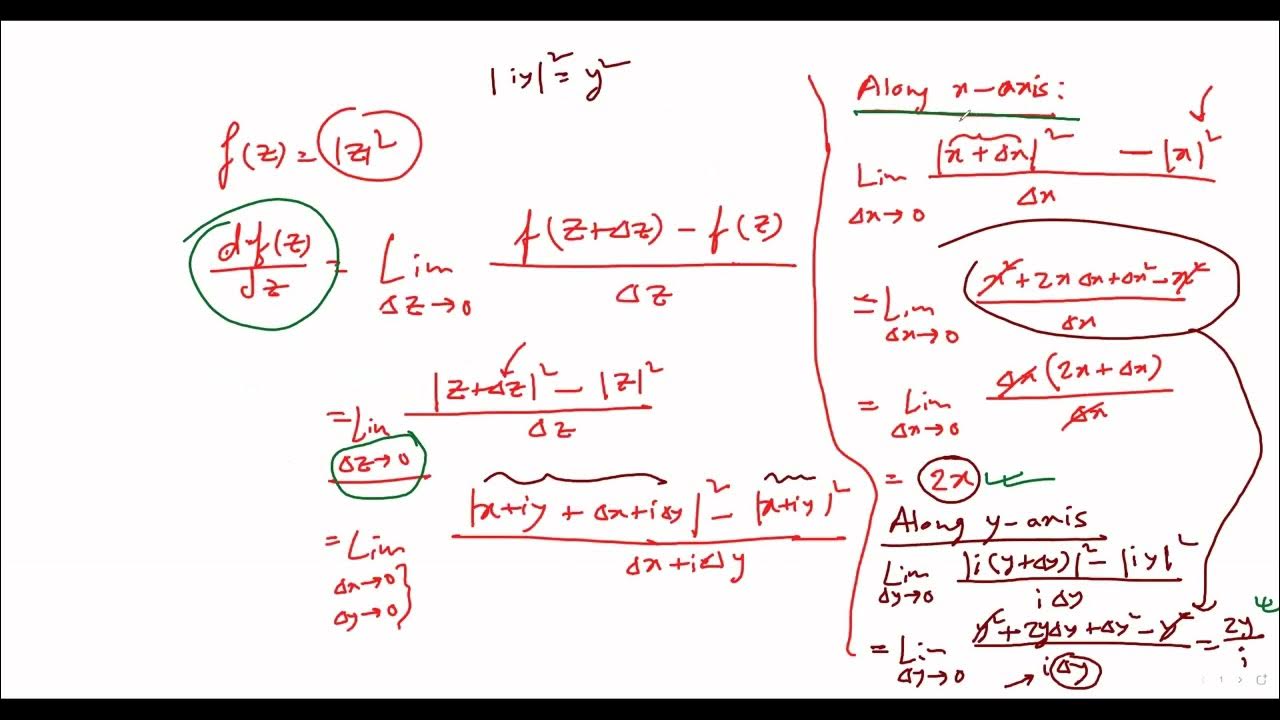 |iy|² = y²
f(z) = |z|²
df(z)/dz = Lim Δz→0 (f(z+Δz) − f(z))/Δz
= Lim Δz→0 (|z+Δz|² − |z|²)/Δz
= Lim Δx→0 Δy→0 (|x+iy + Δx+iΔy|² − |x+iy|²)/(Δx+iΔy)
Along x-axis:
Lim Δx→0 (|x+Δx|² − |x|²)/Δx
= Lim Δx→0 (x²+2xΔx+Δx²−x²)/Δx
= Lim Δx→0 Δx(2x+Δx)/Δx
= 2x
Along y-axis
Lim Δy→0 (|i(y+Δy)|² − |iy|²)/iΔy
= Lim Δy→0 (y²+2yΔy+Δy²−y²)/iΔy = 2y/i
1